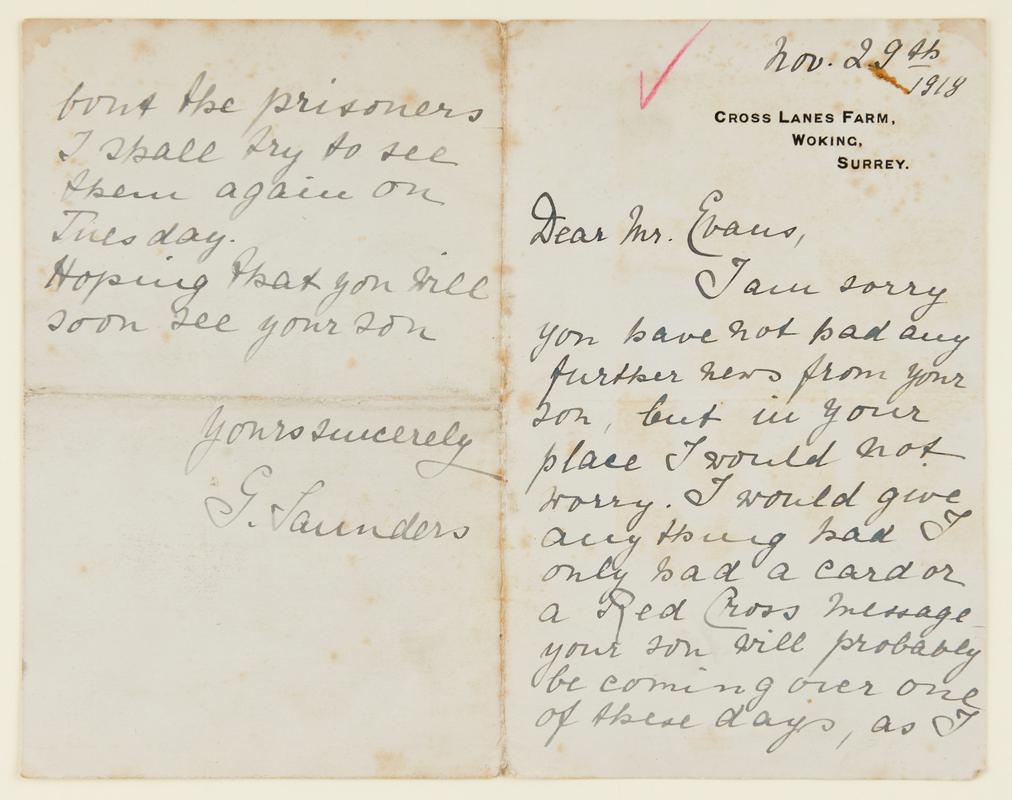 Nov. 29th
1918
CROSS LANES FARM,
WOKING,
SURREY.
Dear Mr. Evans,
I am sorry
you have not had any
further news from your
son, but in your
place I would not
worry. I would give
anything had I
only had a card or
a Red Cross message
your son will probably
be coming over one
of these days, as I
bout the prisoners
I shall try to see
them again on
Tuesday.
Hoping that you will
soon see your son
Yours sincerely
G. Saunders